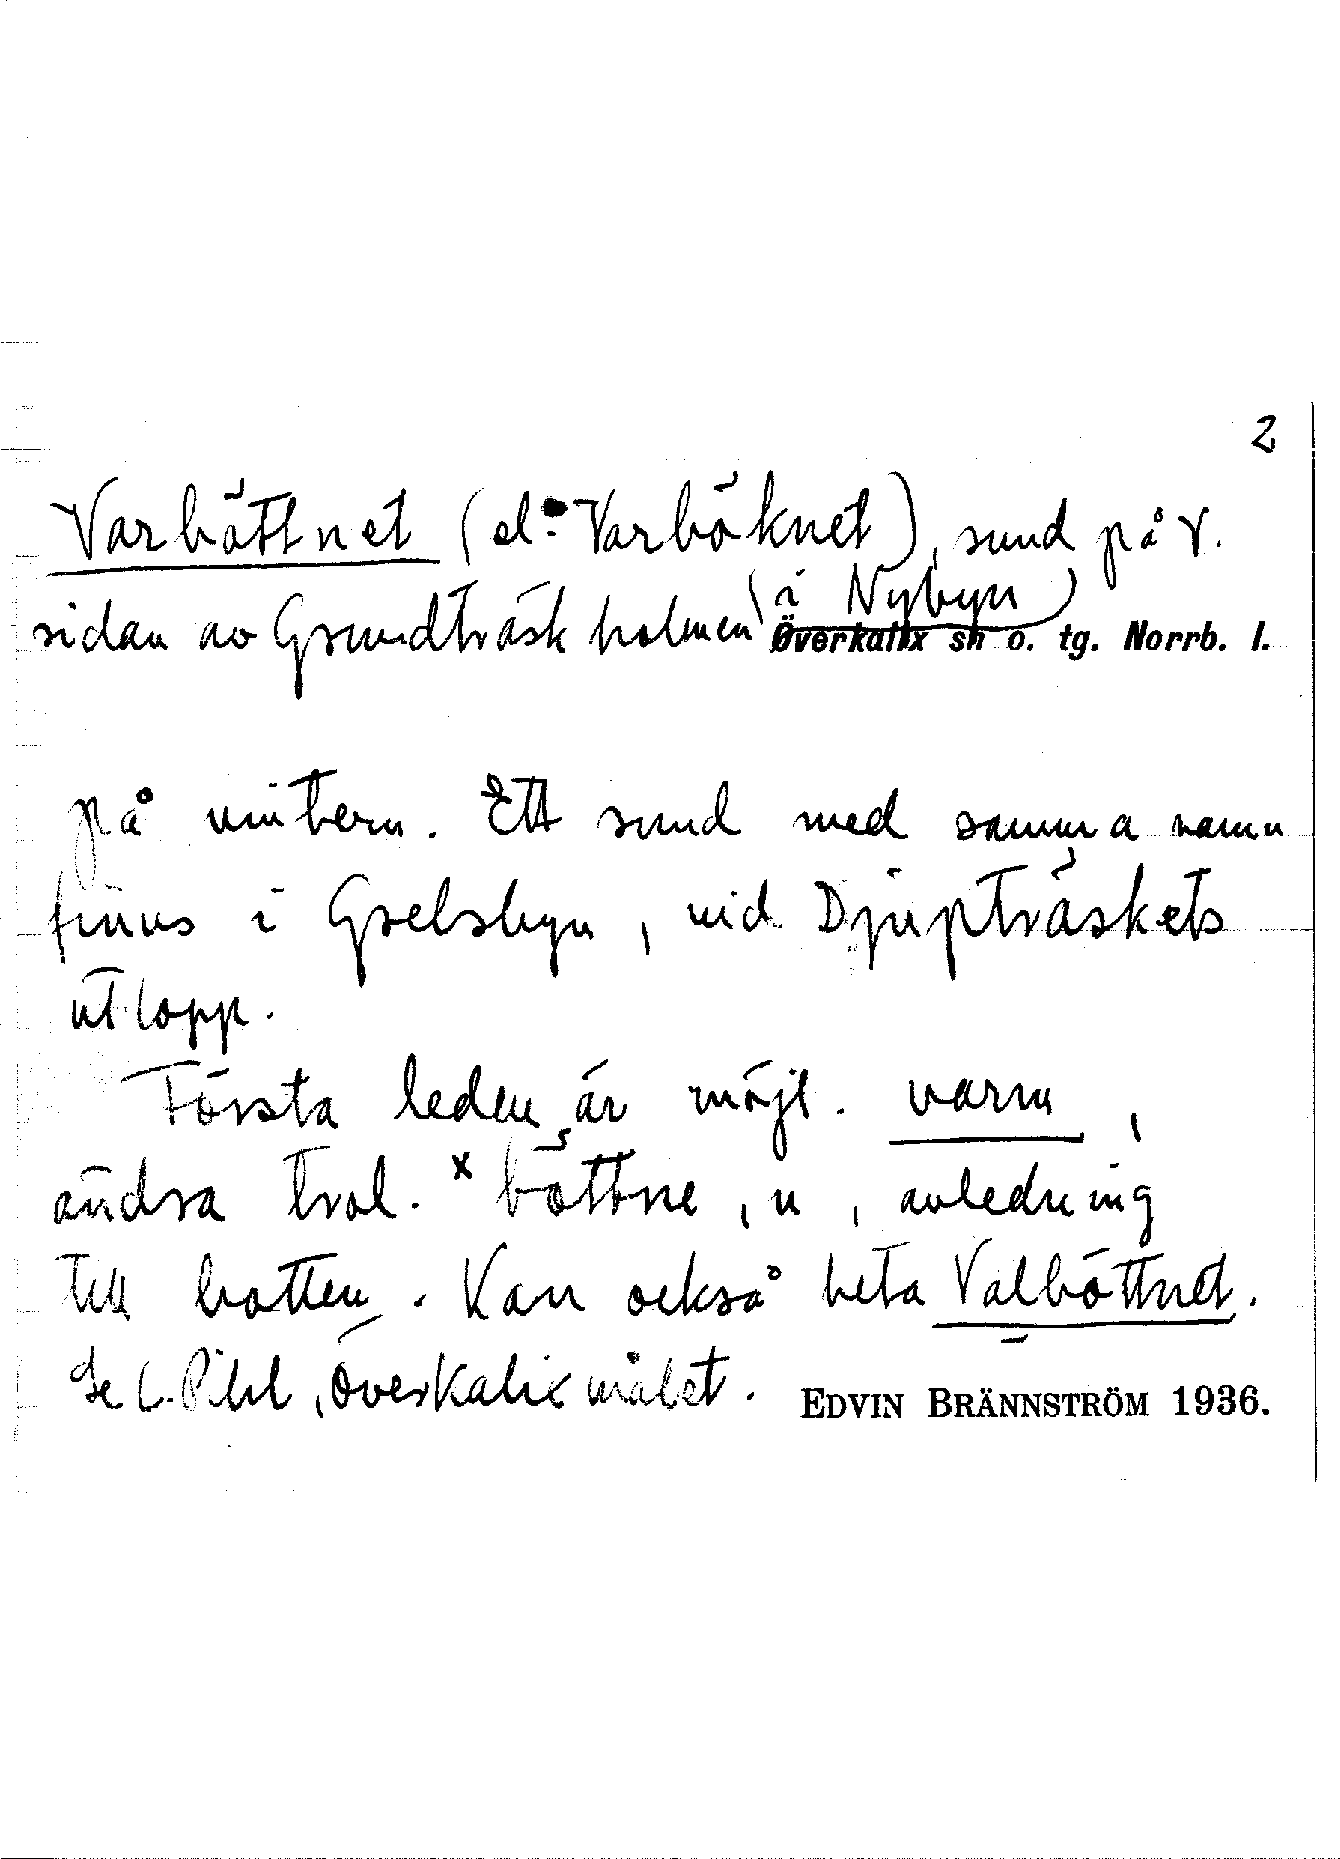 2
Varböttnet (el. Varböknet), sund på v.
sidan av Grundträskholmen (i Nybyn)
Överkalix sn o. tg. Norrb. l.
på vintern. Ett sund med samma namn
finns i Grelsbyn, vid Djupträskets
utlopp.
Första leden är möjl. varm,
andra trol. x böttne, n, avledning
till botten. Kan också heta Valböttnet.
Se C. Pihl, Överkalixmålet. EDVIN BRÄNNSTRÖM 1936.